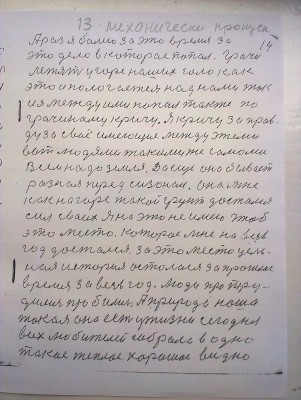 13 - механически пропуск
14
А раз я болею за это время за
это дело в которое попал. Грачи
летят у горе наших голо как
это и пологается над нами так
и я между ими попал также по
грачиному кричу. Я кричу за прав-
ду за своё имеющие между этеми
вот людями такими же самоми
Всем надо земля. Да еще она бывает
разная перед сизоная. она мне
как на горе такой грунт достался
сил своих я на это не имею чтоб
это место. которое мне на весь
год достался. За это место цел-
ная история осталася за прошлое
время за весь год. Люди про тру-
дились пробыли. А природа наша
такая она есть у жизни сегодня
всех любителей собрала в одно
такое теплое хорошое видно